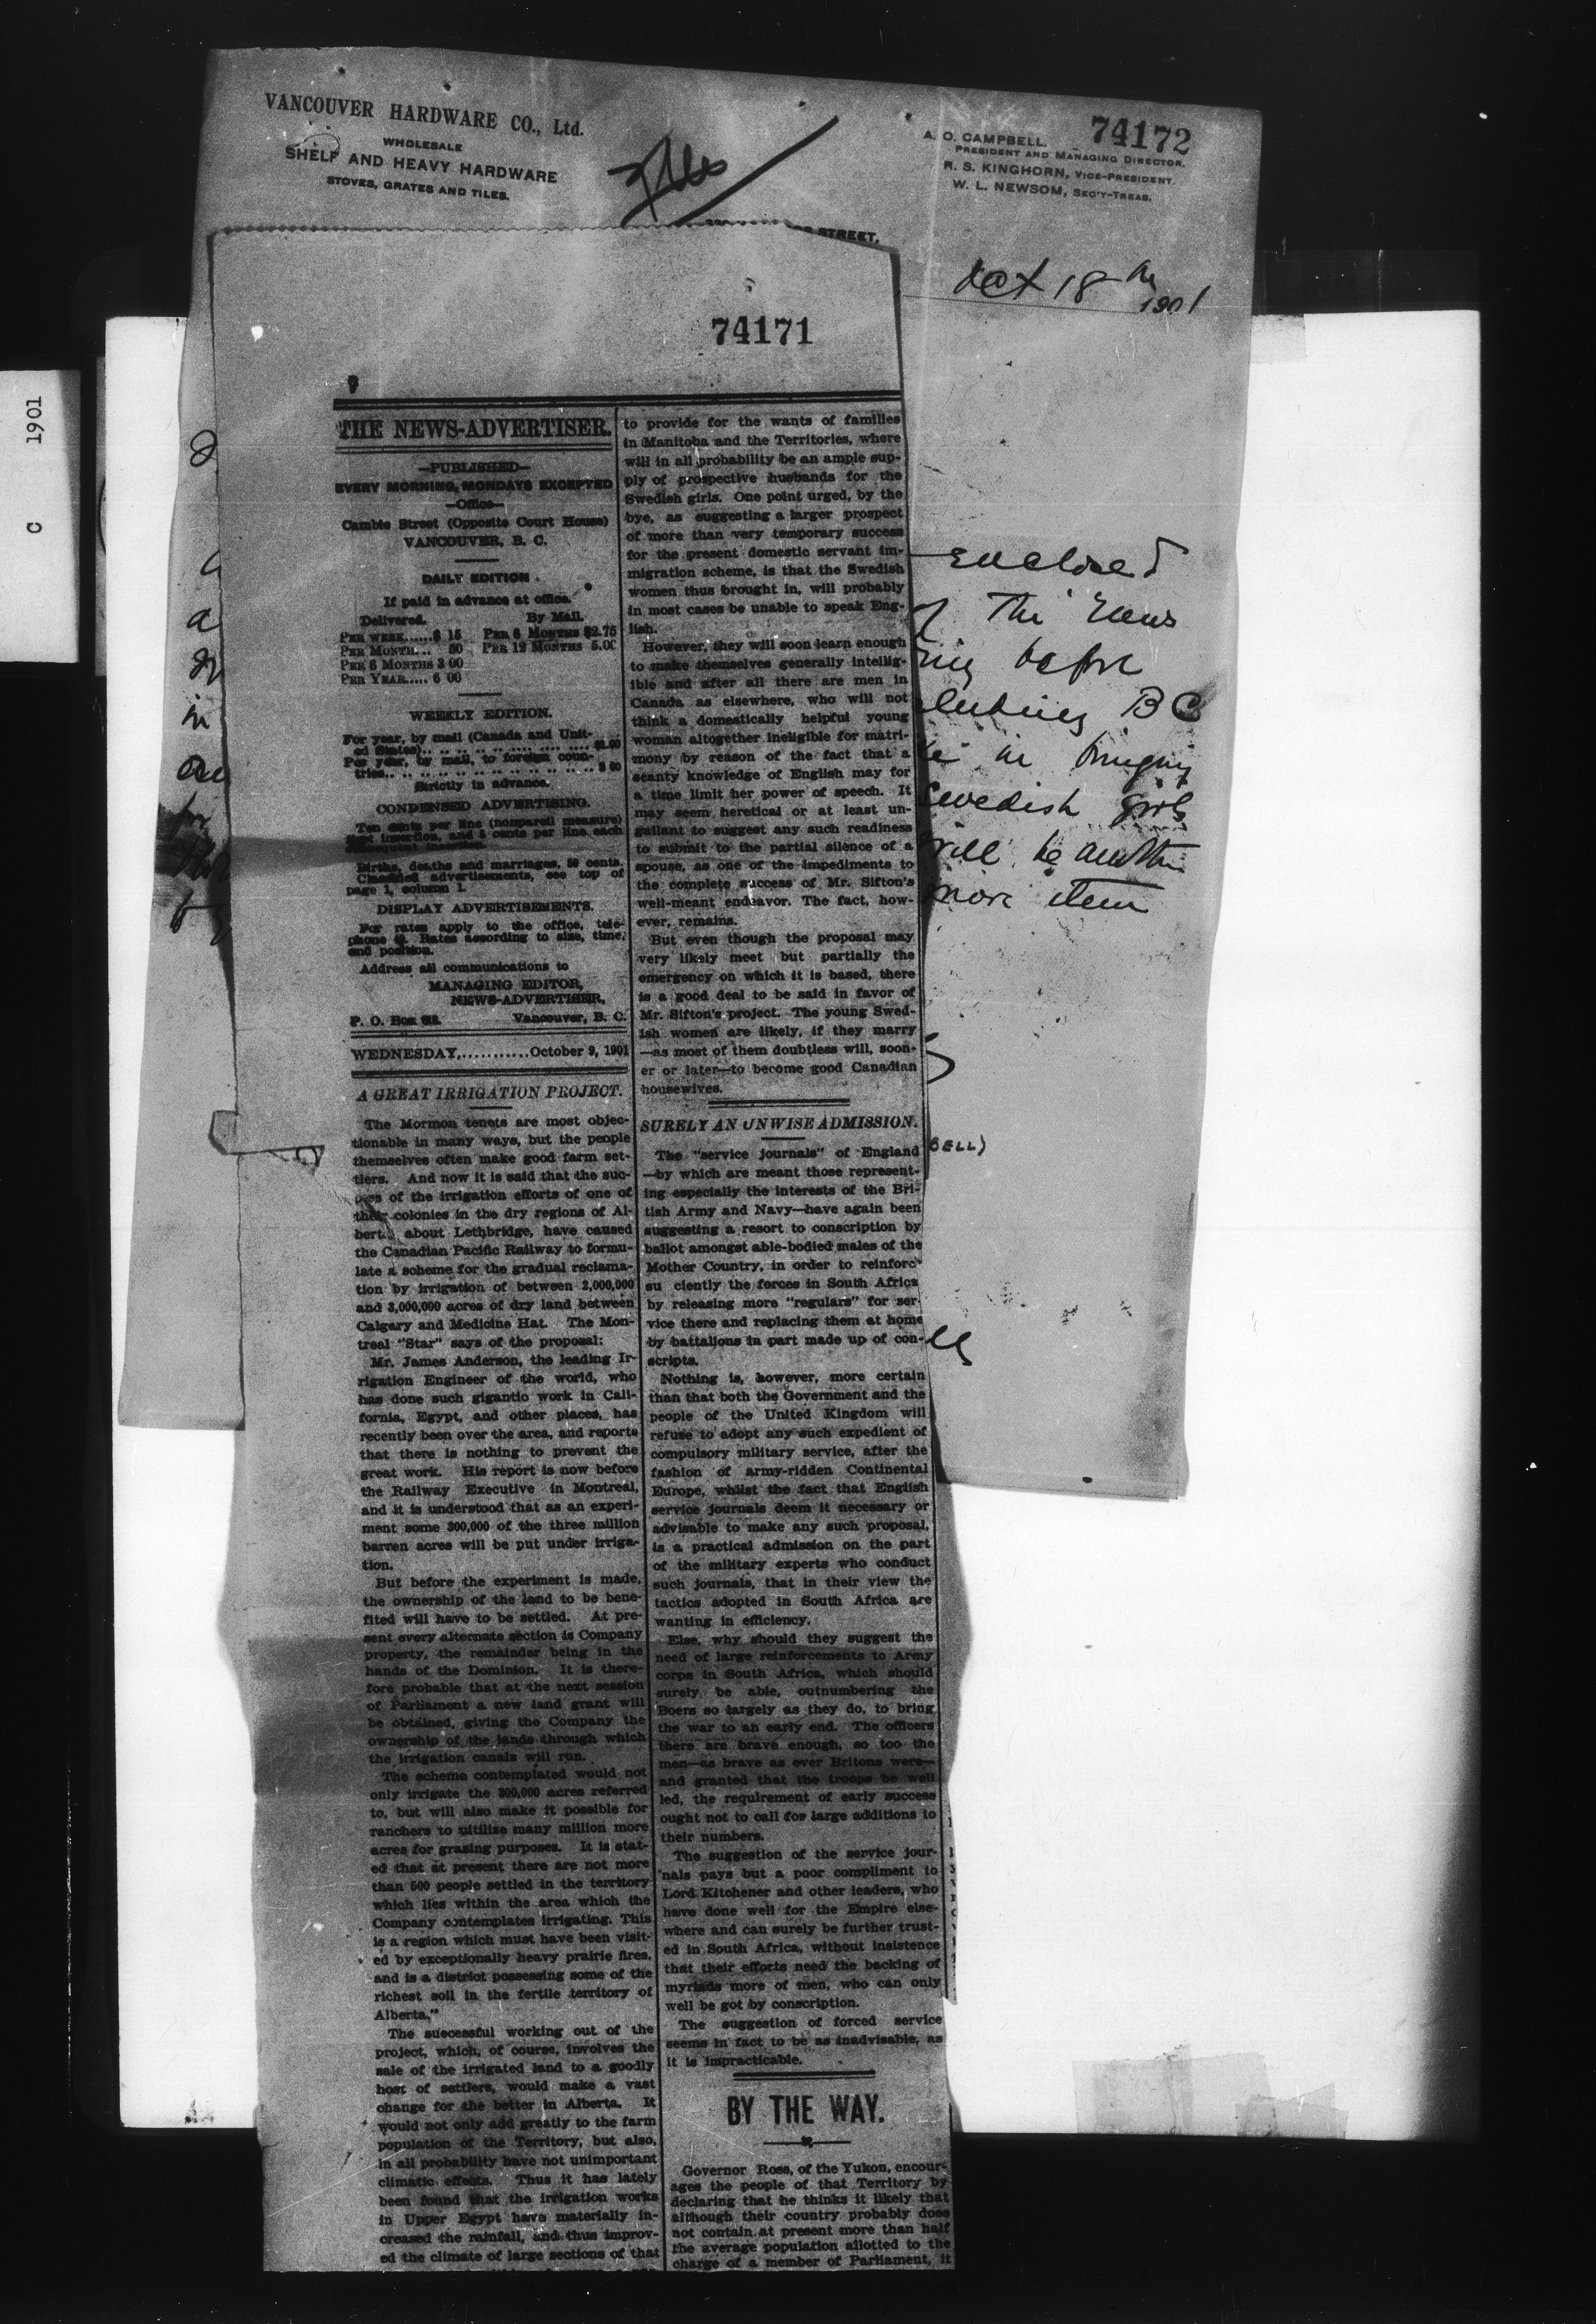 C 1901
VANCOUVER HARDWARE CO., Ltd.
WHOLESALE
SHELF AND HEAVY HARDWARE
STOVES, GRATES AND TILES.
74172
A. O. CAMPBELL.
PRESIDENT AND MANAGING DIRECTOR.
R. S. KINGHORN, VICE-PRESIDENT.
W. L. NEWSOM, SEC'Y-TREAS.
STREET,
Oct 18th 1901
enclosed
The News
before
BC
in bringing
Swedish girls
will be another
more item
BELL)
74171
THE NEWS-ADVERTISER.
—PUBLISHED—
EVERY MORNING, MONDAYS EXCEPTED
—Office—
Cambie Street (Opposite Court House)
VANCOUVER, B. C.
DAILY EDITION
If paid in advance at office.
Delivered. By Mail.
PER WEEK......$ 15 PER 6 MONTHS $2.75
PER MONTH.... 50 PER 12 MONTHS 5.00
PER 6 MONTHS 3 00
PER YEAR..... 6 00
WEEKLY EDITION.
For year, by mail (Canada and Unit-
ed States)
Per year, by mail, to foreign coun-
tries
Strictly in advance.
CONDENSED ADVERTISING.
Ten cents per line (nonpareil measure)
first insertion, and 5 cents per line each
subsequent insertion.
Births, deaths and marriages, 50 cents.
Classified advertisements, see top of
page 1, column 1.
DISPLAY ADVERTISEMENTS.
For rates apply to the office, tele-
phone Rates according to size, time,
and position.
Address all communications to
MANAGING EDITOR,
NEWS-ADVERTISER,
P. O. Box Vancouver, B. C.
WEDNESDAY,...........October 9, 1901
A GREAT IRRIGATION PROJECT.
The Mormon tenets are most objec-
tionable in many ways, but the people
themselves often make good farm set-
tlers. And now it is said that the suc-
cess of the irrigation efforts of one of
their colonies in the dry regions of Al-
berta about Lethbridge, have caused
the Canadian Pacific Railway to formu-
late a scheme for the gradual reclama-
tion by irrigation of between 2,000,000
and 3,000,000 acres of dry land between
Calgary and Medicine Hat. The Mon-
treal "Star" says of the proposal:
Mr. James Anderson, the leading Ir-
rigation Engineer of the world, who
has done such gigantic work in Cali-
fornia, Egypt, and other places, has
recently been over the area, and reports
that there is nothing to prevent the
great work. His report is now before
the Railway Executive in Montreal,
and it is understood that as an experi-
ment some 300,000 of the three million
barren acres will be put under irriga-
tion.
But before the experiment is made,
the ownership of the land to be bene-
fited will have to be settled. At pre-
sent every alternate section is Company
property, the remainder being in the
hands of the Dominion. It is there-
fore probable that at the next session
of Parliament a new land grant will
be obtained, giving the Company the
ownership of the lands through which
the irrigation canals will run.
The scheme contemplated would not
only irrigate the 300,000 acres referred
to, but will also make it possible for
ranchers to uitilize many million more
acres for grazing purposes. It is stat-
ed that at present there are not more
than 500 people settled in the territory
which lies within the area which the
Company contemplates irrigating. This
is a region which must have been visit-
ed by exceptionally heavy prairie fires,
and is a district possessing some of the
richest soil in the fertile territory of
Alberta."
The successful working out of the
project, which, of course, involves the
sale of the irrigated land to a goodly
host of settlers, would make a vast
change for the better in Alberta. It
would not only add greatly to the farm
population of the Territory, but also,
in all probability have not unimportant
climatic effects. Thus it has lately
been found that the irrigation works
in Upper Egypt have materially in-
creased the rainfall, and thus improv-
ed the climate of large sections of that
to provide for the wants of families
in Manitoba and the Territories, where
will in all probability be an ample sup-
ply of prospective husbands for the
Swedish girls. One point urged, by the
bye, as suggesting a larger prospect
of more than very temporary success
for the present domestic servant im-
migration scheme, is that the Swedish
women thus brought in, will probably
in most cases be unable to speak Eng-
lish.
However, they will soon learn enough
to make themselves generally intellig-
ible and after all there are men in
Canada as elsewhere, who will not
think a domestically helpful young
woman altogether ineligible for matri-
mony by reason of the fact that a
scanty knowledge of English may for
a time limit her power of speech. It
may seem heretical or at least un-
gallant to suggest any such readiness
to submit to the partial silence of a
spouse, as one of the impediments to
the complete success of Mr. Sifton's
well-meant endeavor. The fact, how-
ever, remains.
But even though the proposal may
very likely meet but partially the
emergency on which it is based, there
is a good deal to be said in favor of
Mr. Sifton's project. The young Swed-
ish women are likely, if they marry
—as most of them doubtless will, soon-
er or later—to become good Canadian
housewives.
SURELY AN UNWISE ADMISSION.
The "service journals" of England
—by which are meant those represent-
ing especially the interests of the Bri-
tish Army and Navy—have again been
suggesting a resort to conscription by
ballot amongst able-bodied males of the
Mother Country, in order to reinforc
su ciently the forces in South Africa
by releasing more "regulars" for ser-
vice there and replacing them at home
by battalions in part made up of con-
scripts.
Nothing is, however, more certain
than that both the Government and the
people of the United Kingdom will
refuse to adopt any such expedient of
compulsory military service, after the
fashion of army-ridden Continental
Europe, whilst the fact that English
service journals deem it necessary or
advisable to make any such proposal,
is a practical admission on the part
of the military experts who conduct
such journals, that in their view the
tactics adopted in South Africa are
wanting in efficiency.
Else, why should they suggest the
need of large reinforcements to Army
corps in South Africa, which should
surely be able, outnumbering the
Boers so largely as they do, to bring
the war to an early end. The officers
there are brave enough, so too the
men—as brave as ever Britons were—
and granted that the troops be well
led, the requirement of early success
ought not to call for large additions to
their numbers.
The suggestion of the service jour-
nals pays but a poor compliment to
Lord Kitchener and other leaders, who
have done well for the Empire else-
where and can surely be further trust-
ed in South Africa, without insistence
that their efforts need the backing of
myriads more of men, who can only
well be got by conscription.
The suggestion of forced service
seems in fact to be as inadvisable, as
it is impracticable.
BY THE WAY.
Governor Ross, of the Yukon, encour-
ages the people of that Territory by
declaring that he thinks it likely that
although their country probably does
not contain at present more than half
the average population allotted to the
charge of a member of Parliament, it